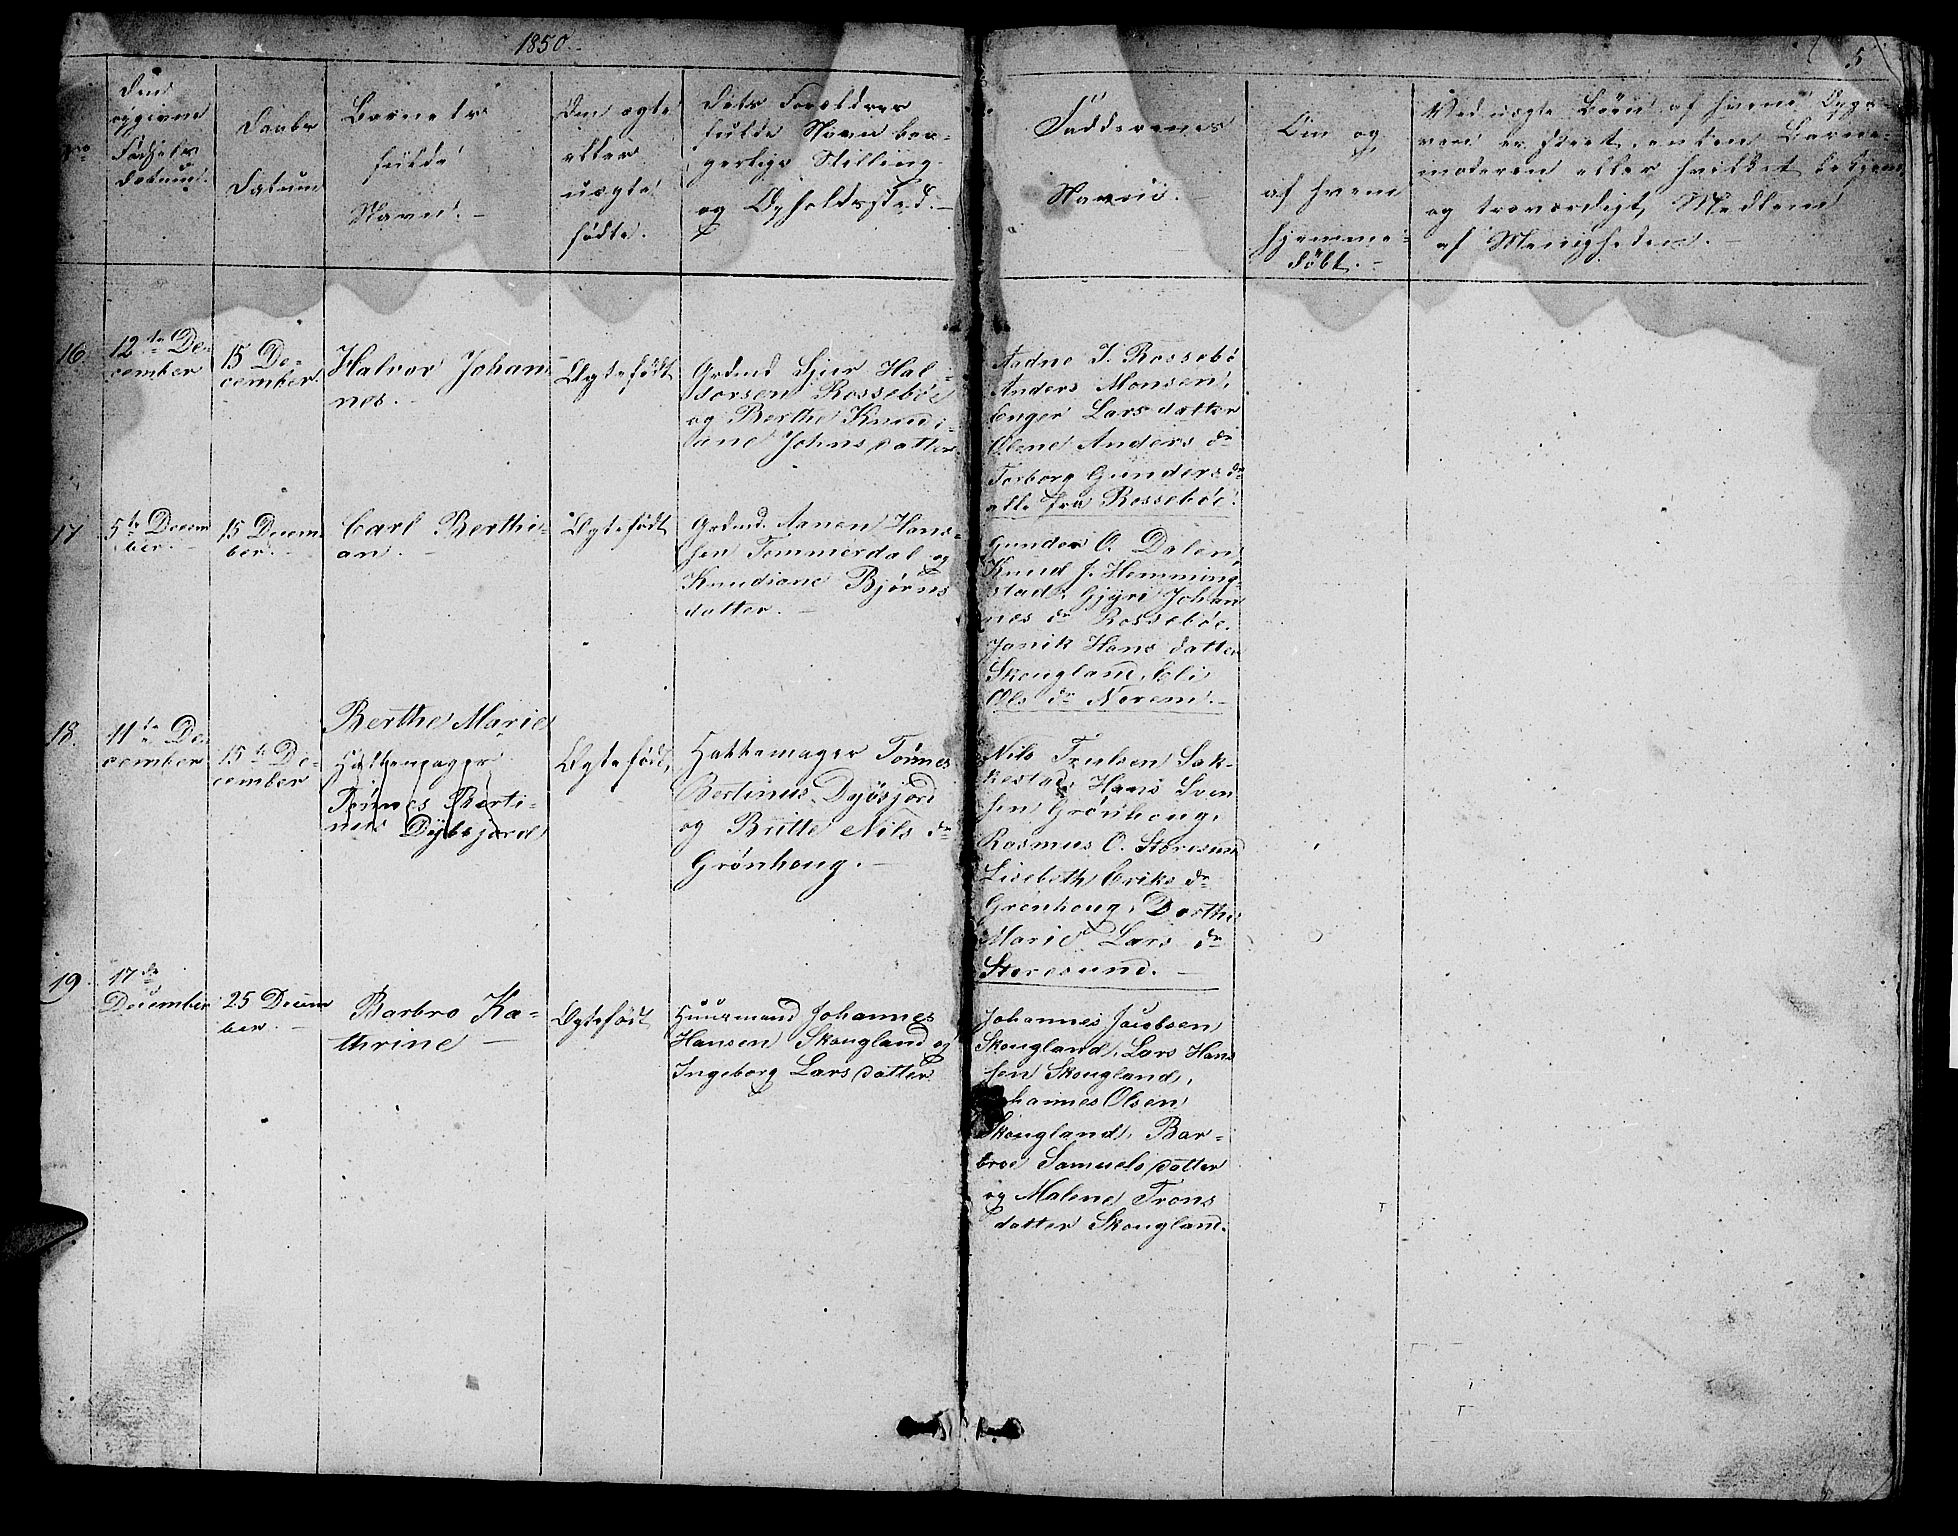 1850.
5
No
Den
opgivne
Fødsels
datum.
Daabs
Datum
Barnets
fulde
Navn. -
Om ægte
eller
uægte
født.
Dets Forældres
fulde Navn bor-
gerlige Stilling
og Opholdssted. -
Faddernes
Navne. -
Om og
af hvem
hjemme-
døbt. -
Ved uægte Børn af hvem Opga-
ven er skeet, enten Barne-
moderen eller hvilket bekjen
og troværdigt, Medlem
af Menigheden. -
16
12te De-
cember
15 De-
cember
Halvor Johan
nes. -
Ægtefødt
Grdmd Sjur Hal-
vorsen Rossebøe
og Berthe Knudi-
ane Johnsdatter
Aadne J. Rossebø
Anders Monsen,
Enger Larsdatter
Olene Anders dr
Torborg Gunders dr
alle fra Rossebøe.
17
5te Decem
ber. -
15 Decem
ber. -
Carl Berthi-
an. -
Ægtefødt
Grdmd. Aanen Hans-
sen Tommerdal og
Knudiane Bjørns
datter. -
Gunder O. Dalen,
Knud J. Hemming-
stad, Gjøri Johan
nes dr Rossebøe.
Janik Hans datter
Skougland, Eli
Ols dr Norem. -
18.
11te De-
cember
15te De-
cember
Berthe Marie
Hakkemager
Tønnes Berti-
nus Dybsjord
Ægtefødt
Hakkemager Tønnes
Bertinus Dybsjord
og Britte Nils dr
Grønhoug. -
Nils Trulsen Sak-
kestad, Hans Sven
sen Grønhoug,
Rasmus O. Storesund
Lisebeth Eriks dr
Grønhoug, Dorthe
Marie Lars dr
Storesund. -
19.
17de
December
25 Decem
ber. -
Barbro Ka-
thrine -
Ægtefødt
Huusmand Johannes
Hansen Skougland og
Ingeborg Larsdatter
Johannes Jacobsen
Skougland, Lars Hans
sen Skougland,
Johannes Olsen
Skougland, Bar-
broe Samuelsdatter
og Malene Trons
datter Skougland.